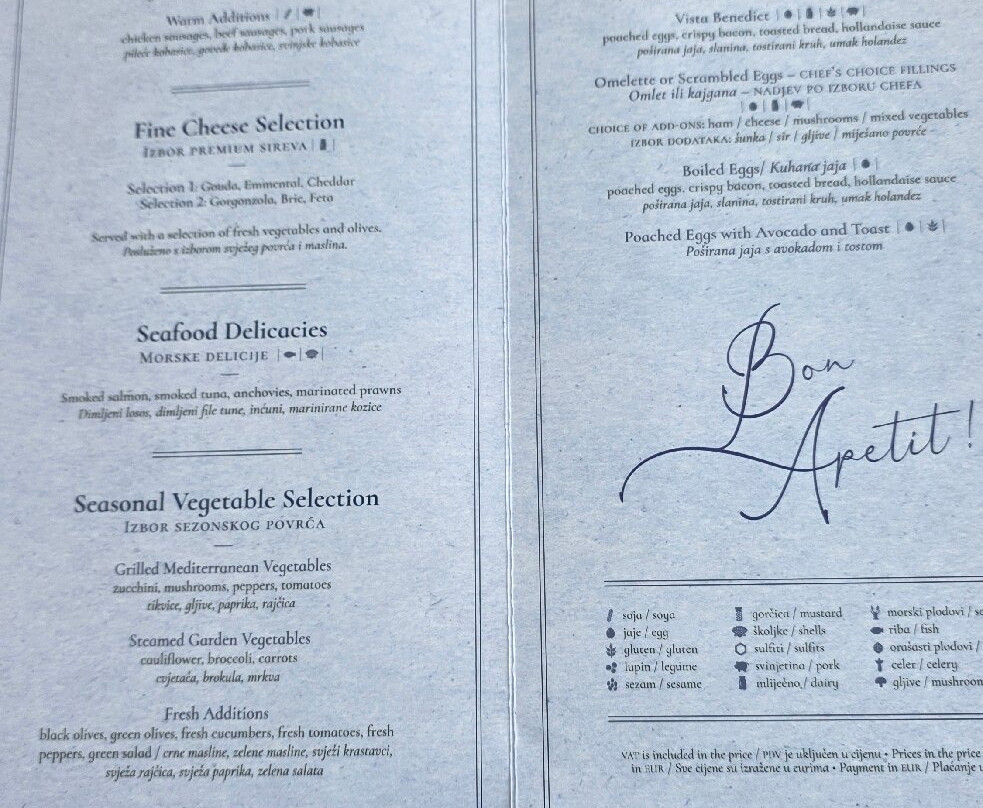 Warm Additions
chicken sausages, beef sausages, pork sausages
pileće kobasice, goveđe kobasice, svinjske kobasice
Fine Cheese Selection
IZBOR PREMIUM SIREVA
Selection 1: Gouda, Emmental, Cheddar
Selection 2: Gorgonzola, Brie, Feta
Served with a selection of fresh vegetables and olives.
Posluženo s izborom svježeg povrća i maslina.
Seafood Delicacies
MORSKE DELICIJE
Smoked salmon, smoked tuna, anchovies, marinated prawns
Dimljeni losos, dimljeni file tune, inćuni, marinirane kozice
Seasonal Vegetable Selection
IZBOR SEZONSKOG POVRĆA
Grilled Mediterranean Vegetables
zucchini, mushrooms, peppers, tomatoes
tikvice, gljive, paprika, rajčica
Steamed Garden Vegetables
cauliflower, broccoli, carrots
cvjetača, brokula, mrkva
Fresh Additions
black olives, green olives, fresh cucumbers, fresh tomatoes, fresh
peppers, green salad / crne masline, zelene masline, svježi krastavci,
svježa rajčica, svježa paprika, zelena salata
Vista Benedict
poached eggs, crispy bacon, toasted bread, hollandaise sauce
poširana jaja, slanina, tostirani kruh, umak holandez
Omelette or Scrambled Eggs – CHEF'S CHOICE FILLINGS
Omlet ili kajgana – NADJEV PO IZBORU CHEFA
CHOICE OF ADD-ONS: ham / cheese / mushrooms / mixed vegetables
IZBOR DODATAKA: šunka / sir / gljive / miješano povrće
Boiled Eggs/ Kuhana jaja
poached eggs, crispy bacon, toasted bread, hollandaise sauce
poširana jaja, slanina, tostirani kruh, umak holandez
Poached Eggs with Avocado and Toast
Poširana jaja s avokadom i tostom
Bon
Apetit!
soja / soya
jaje / egg
gluten / gluten
lupin / legume
sezam / sesame
gorčica / mustard
školjke / shells
sulfiti / sulfits
svinjetina / pork
mliječno / dairy
morski plodovi / se
riba / fish
orašasti plodovi /
celer / celery
gljive / mushroom
VAT is included in the price / PDV je uključen u cijenu • Prices in the price
in EUR / Sve cijene su izražene u eurima • Payment in EUR / Plaćanje u